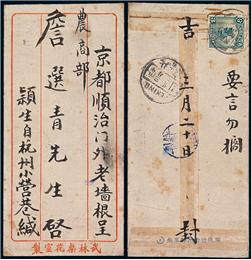 京都順治门外老墙根呈
農商部
詹選青先生啓
頴生自杭州小營巷緘
武林製室花
要言勿擱
吉
三月二十日
封
PEKING